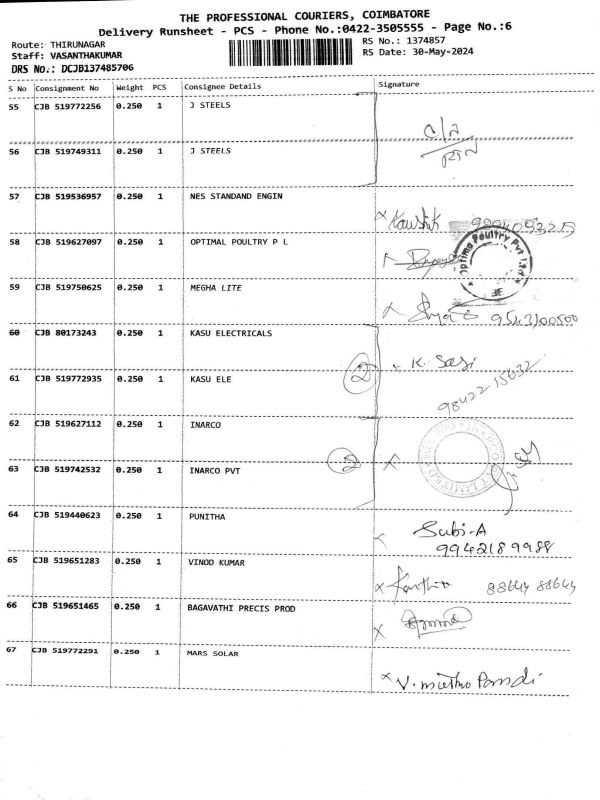 THE PROFESSIONAL COURIERS, COIMBATORE
Delivery Runsheet - PCS - Phone No.:0422-3505555 - Page No.:6
Route: THIRUNAGAR
RS No.: 1374857
Staff: VASANTHAKUMAR
RS Date: 30-May-2024
DRS No.: DCJB137485706
S No Consignment No Weight PCS Consignee Details Signature
55 CJB 519772256 0.250 1 J STEELS
56 CJB 519749311 0.250 1 J STEELS
57 CJB 519536957 0.250 1 NES STANDAND ENGIN
Kaushik
58 CJB 519627097 0.250 1 OPTIMAL POULTRY P L
59 CJB 519750625 0.250 1 MEGHA LITE
60 CJB 80173243 0.250 1 KASU ELECTRICALS
2 K. Sasi
61 CJB 519772935 0.250 1 KASU ELE
98422 15632
62 CJB 519627112 0.250 1 INARCO
2
63 CJB 519742532 0.250 1 INARCO PVT
64 CJB 519440623 0.250 1 PUNITHA
Subi-A
9942189988
65 CJB 519651283 0.250 1 VINOD KUMAR
88644 88644
66 CJB 519651465 0.250 1 BAGAVATHI PRECIS PROD
67 CJB 519772291 0.250 1 MARS SOLAR
V. muthu Pandi